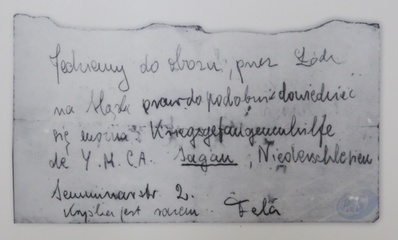 Jedziemy do obozu, przez Łódź
na Śląsk prawdopodobnie dowiedzieć
się można: Kriegsgefangenenhilfe
de Y.M.C.A. Sagan, Niederschlesien
Seminarstr. 2.
Kryśka jest razem. Fela